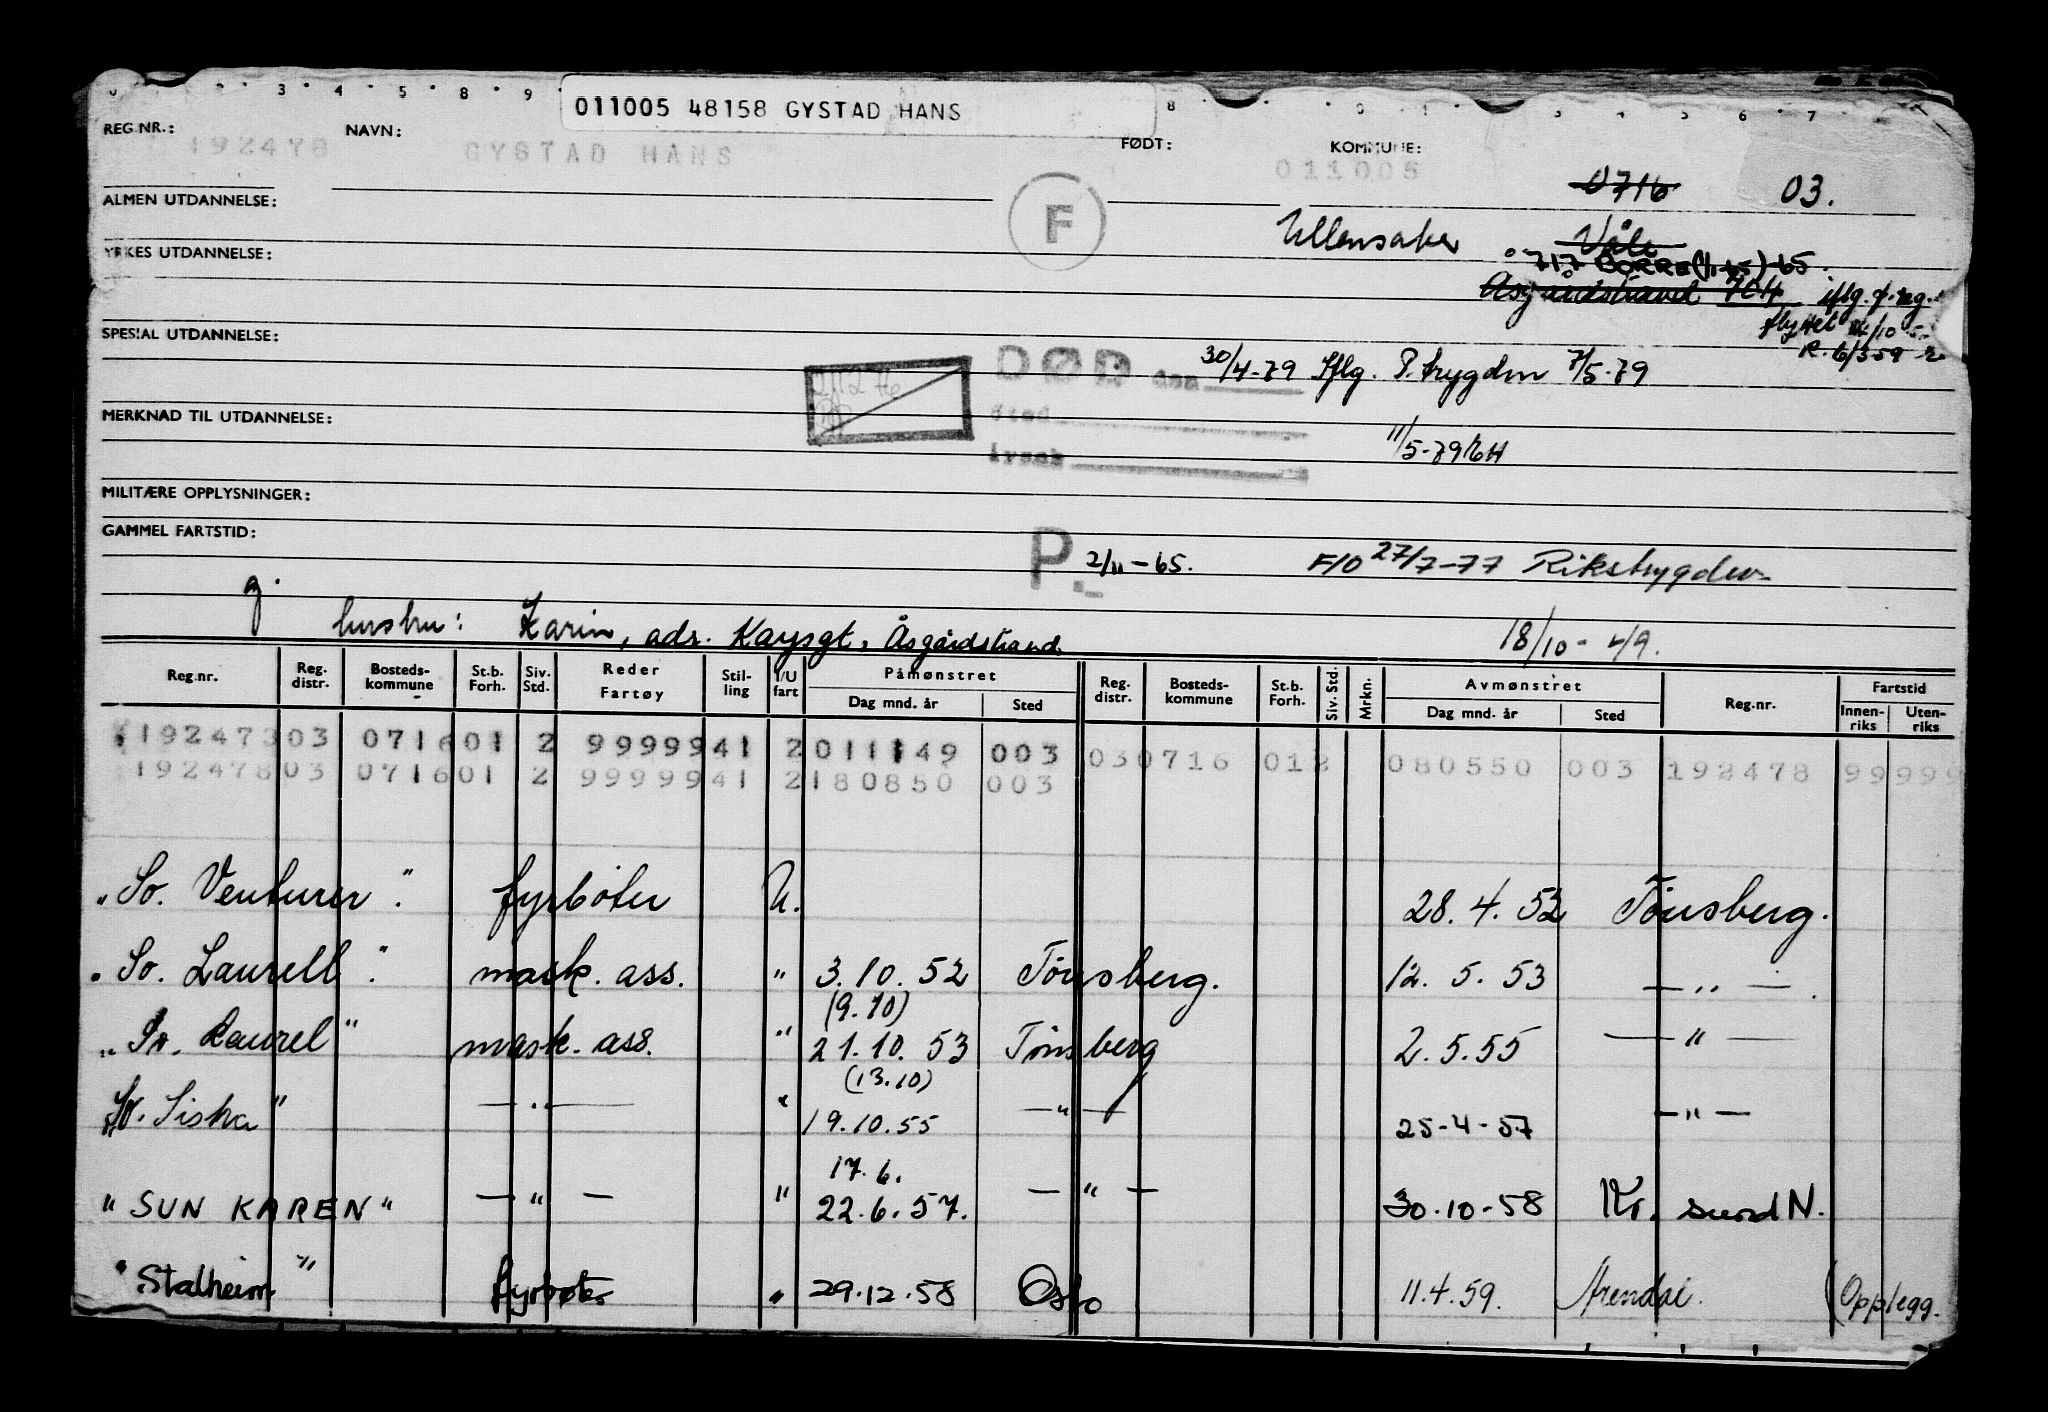 011005 48158 GYSTAD HANS
REG NR.: 192478 NAVN: GYSTAD HANS FØDT: 011005 KOMMUNE:
0716 03.
ALMEN UTDANNELSE:
F
Ullensaker Våle
YRKES UTDANNELSE:
717 BORRE (1/1-65) -65.
Åsgårdstrand 704 iflg. f. reg.
flyttet
SPESIAL UTDANNELSE:
DØD den 30/4-79 Iflg. P. trygden 7/5-79
Sted
Årsak
MERKNAD TIL UTDANNELSE:
11/5-79
MILITÆRE OPPLYSNINGER:
GAMMEL FARTSTID:
P. 2/11-65. F/O 27/7-77 Rikstrygden
g.
hustru: Karin, adr. Kaysgt, Åsgårdstrand. 18/10-49.
Reg.nr. Reg. distr. Bosteds-kommune St.b. Forh. Siv. Std. Reder Fartøy Stil-ling I/U fart Påmønstret Dag mnd. år Sted Reg. distr. Bosteds-kommune St.b. Forh. Siv. Std. Mrkn. Avmønstret Dag mnd. år Sted Reg.nr. Fartstid Innen-riks Uten-riks
192473 03 0716 01 2 9999941 2 011149 003 03 0716 012 080550 003 192478 99999
192478 03 0716 01 2 9999941 2 180850 003
"So. Venturer". fyrbøter U. 28.4.52 Tönsberg.
"So. Laurell". mask. ass. " 3.10.52 Tönsberg. 12.5.53 — " —
(9.10)
"So. Laurel" mask. ass. " 21.10.53 Tönsberg 2.5.55 — " —
(13.10)
So. Siska" — " — " 19.10.55 — " — 25-4-57 — " —
17.6.
"SUN KAREN" — " — " 22.6.57. — " — 30.10-58 Kr. sund N.
"Stalheim" fyrbøter " 29.12.58 Oslo 11.4.59. Arendal. (Opplegg.